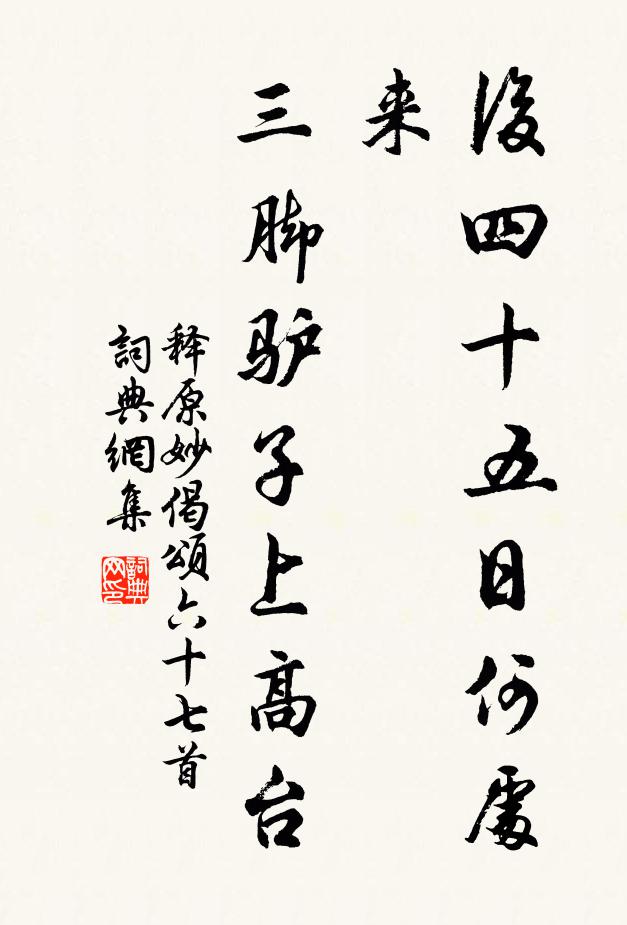 後四十五日何處
来
三脚驴子上高台
释原妙偈頌六十七首
詞典網集
詞典网印